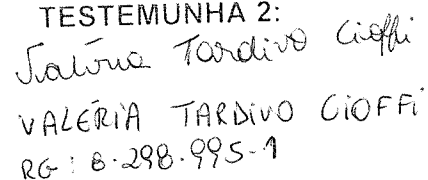 TESTEMUNHA 2:
Valéria Tardivo Cioffi
VALÉRIA TARDIVO CIOFFI
RG: 8.298.995-1